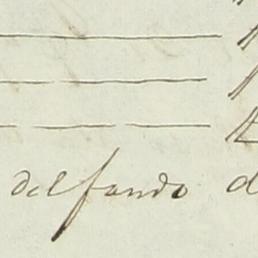 del fondo d